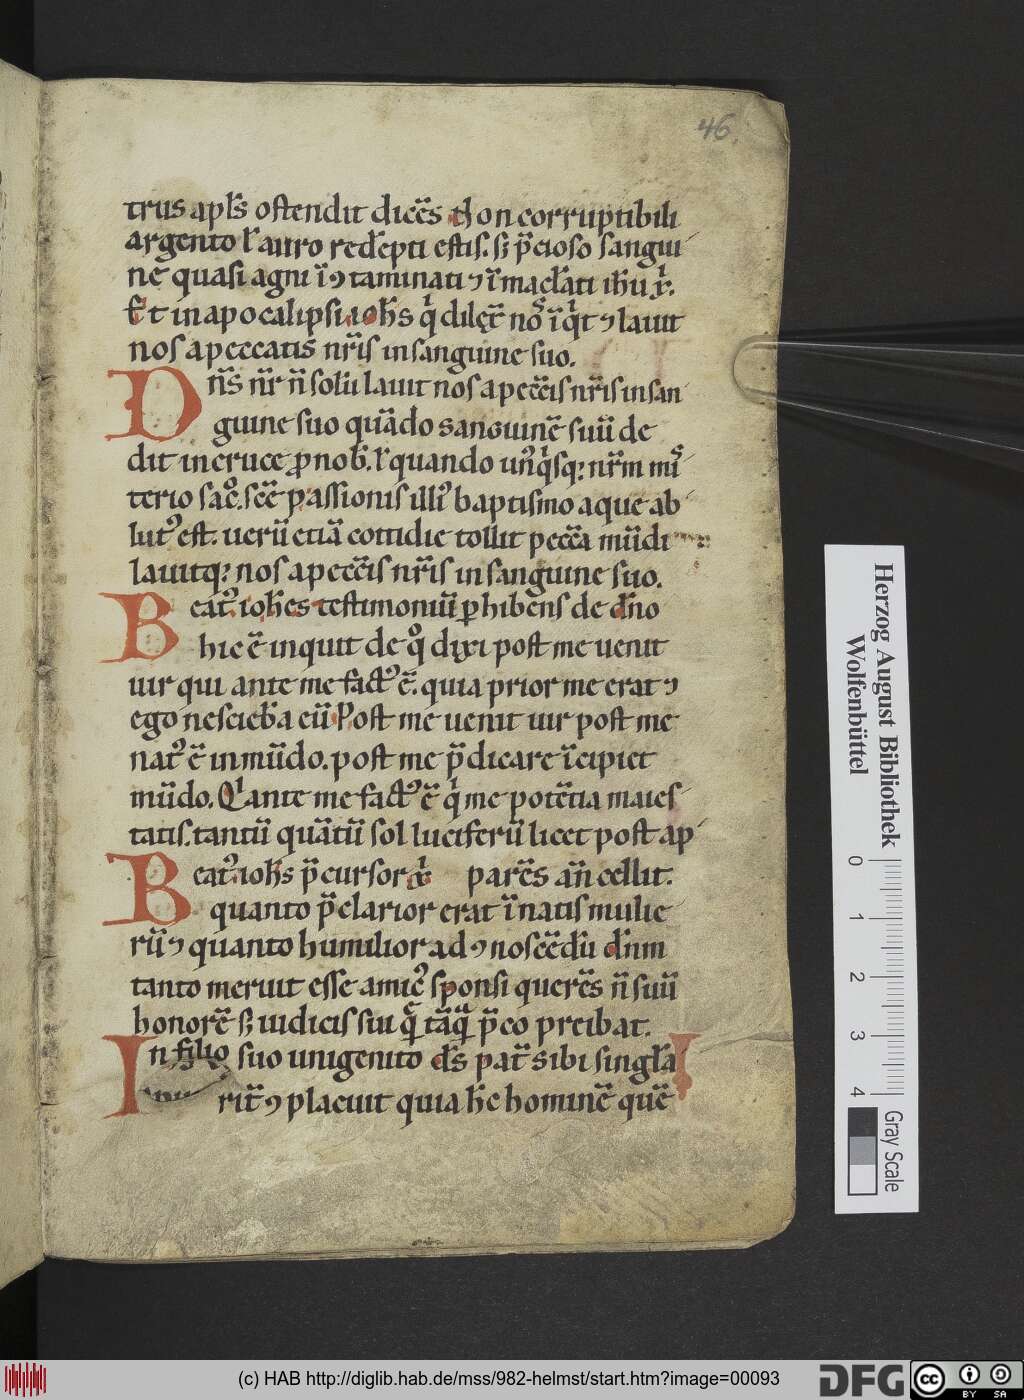 46
trus apłs ostendit dicēs Non corruptibili
argento ł auro redēpti estis. s; p̄cioso sangui
ne quasi agni īꝯtaminati ꝯ īmaclati ihu xi.
Et in apocalipsi iohs qi dilex̄ nos īqit ꝯ lauit
nos a peccatis nr̄is in sanguine suo.
Dn̄s nr̄ n̄ solū lauit nos a peccīs nr̄is in san
guine suo quādo sanguinē suū de
dit in cruce ꝓ nob. ł quando unꝰqisq; nr̄m mi
terio sac̄. scē passionis illiꝰ baptismo aque ab
lutꝰ est. uerū etiā cottidie tollit pecc̄a mūdi
lauitq; nos a pecc̄is nr̄is in sanguine suo.
Beatꝰ iohes testimoniū ꝑhibens de dn̄o
hic ē inquit de qo dixi post me uenit
uir qui ante me factꝰ ē. quia prior me erat ꝯ
ego nescieba eū Post me uenit uir post me
natꝰ ē in mūdo. post me p̄dicare īcipiet
mūdo. Qi ante me factꝰ ē qi me potētia maies
tatis. tantū quātū sol luciferū licet post ap
Beatꝰ iohs p̄cursor xi parēs an̄cellit.
quanto p̄clarior erat ī natis mulie
rū ꝯ quanto humilior ad ꝯnoscēdū dn̄m
tanto meruit esse amicꝰ sponsi querēs n̄ suū
honorē s; iudicis sui qe tāqa p̄co preibat.
In filio suo unigenito ds̄ pat̄ sibi singla
rit̄ ꝯplacuit quia hc̄ hominē quē
Herzog August Bibliothek
Wolfenbüttel
0 1 2 3 4
Gray Scale
(c) HAB http://diglib.hab.de/mss/982-helmst/start.htm?image=00093
DFG
cc
BY SA